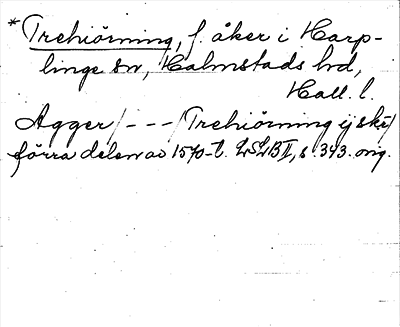 * Trehiörning, f. åker i Harp-
linge sn, Halmstads hd,
Hall. l.
Agger /---/ Trehiörning ij ske/
förra delen av 1570-t. LSLB II, s. 343. orig.